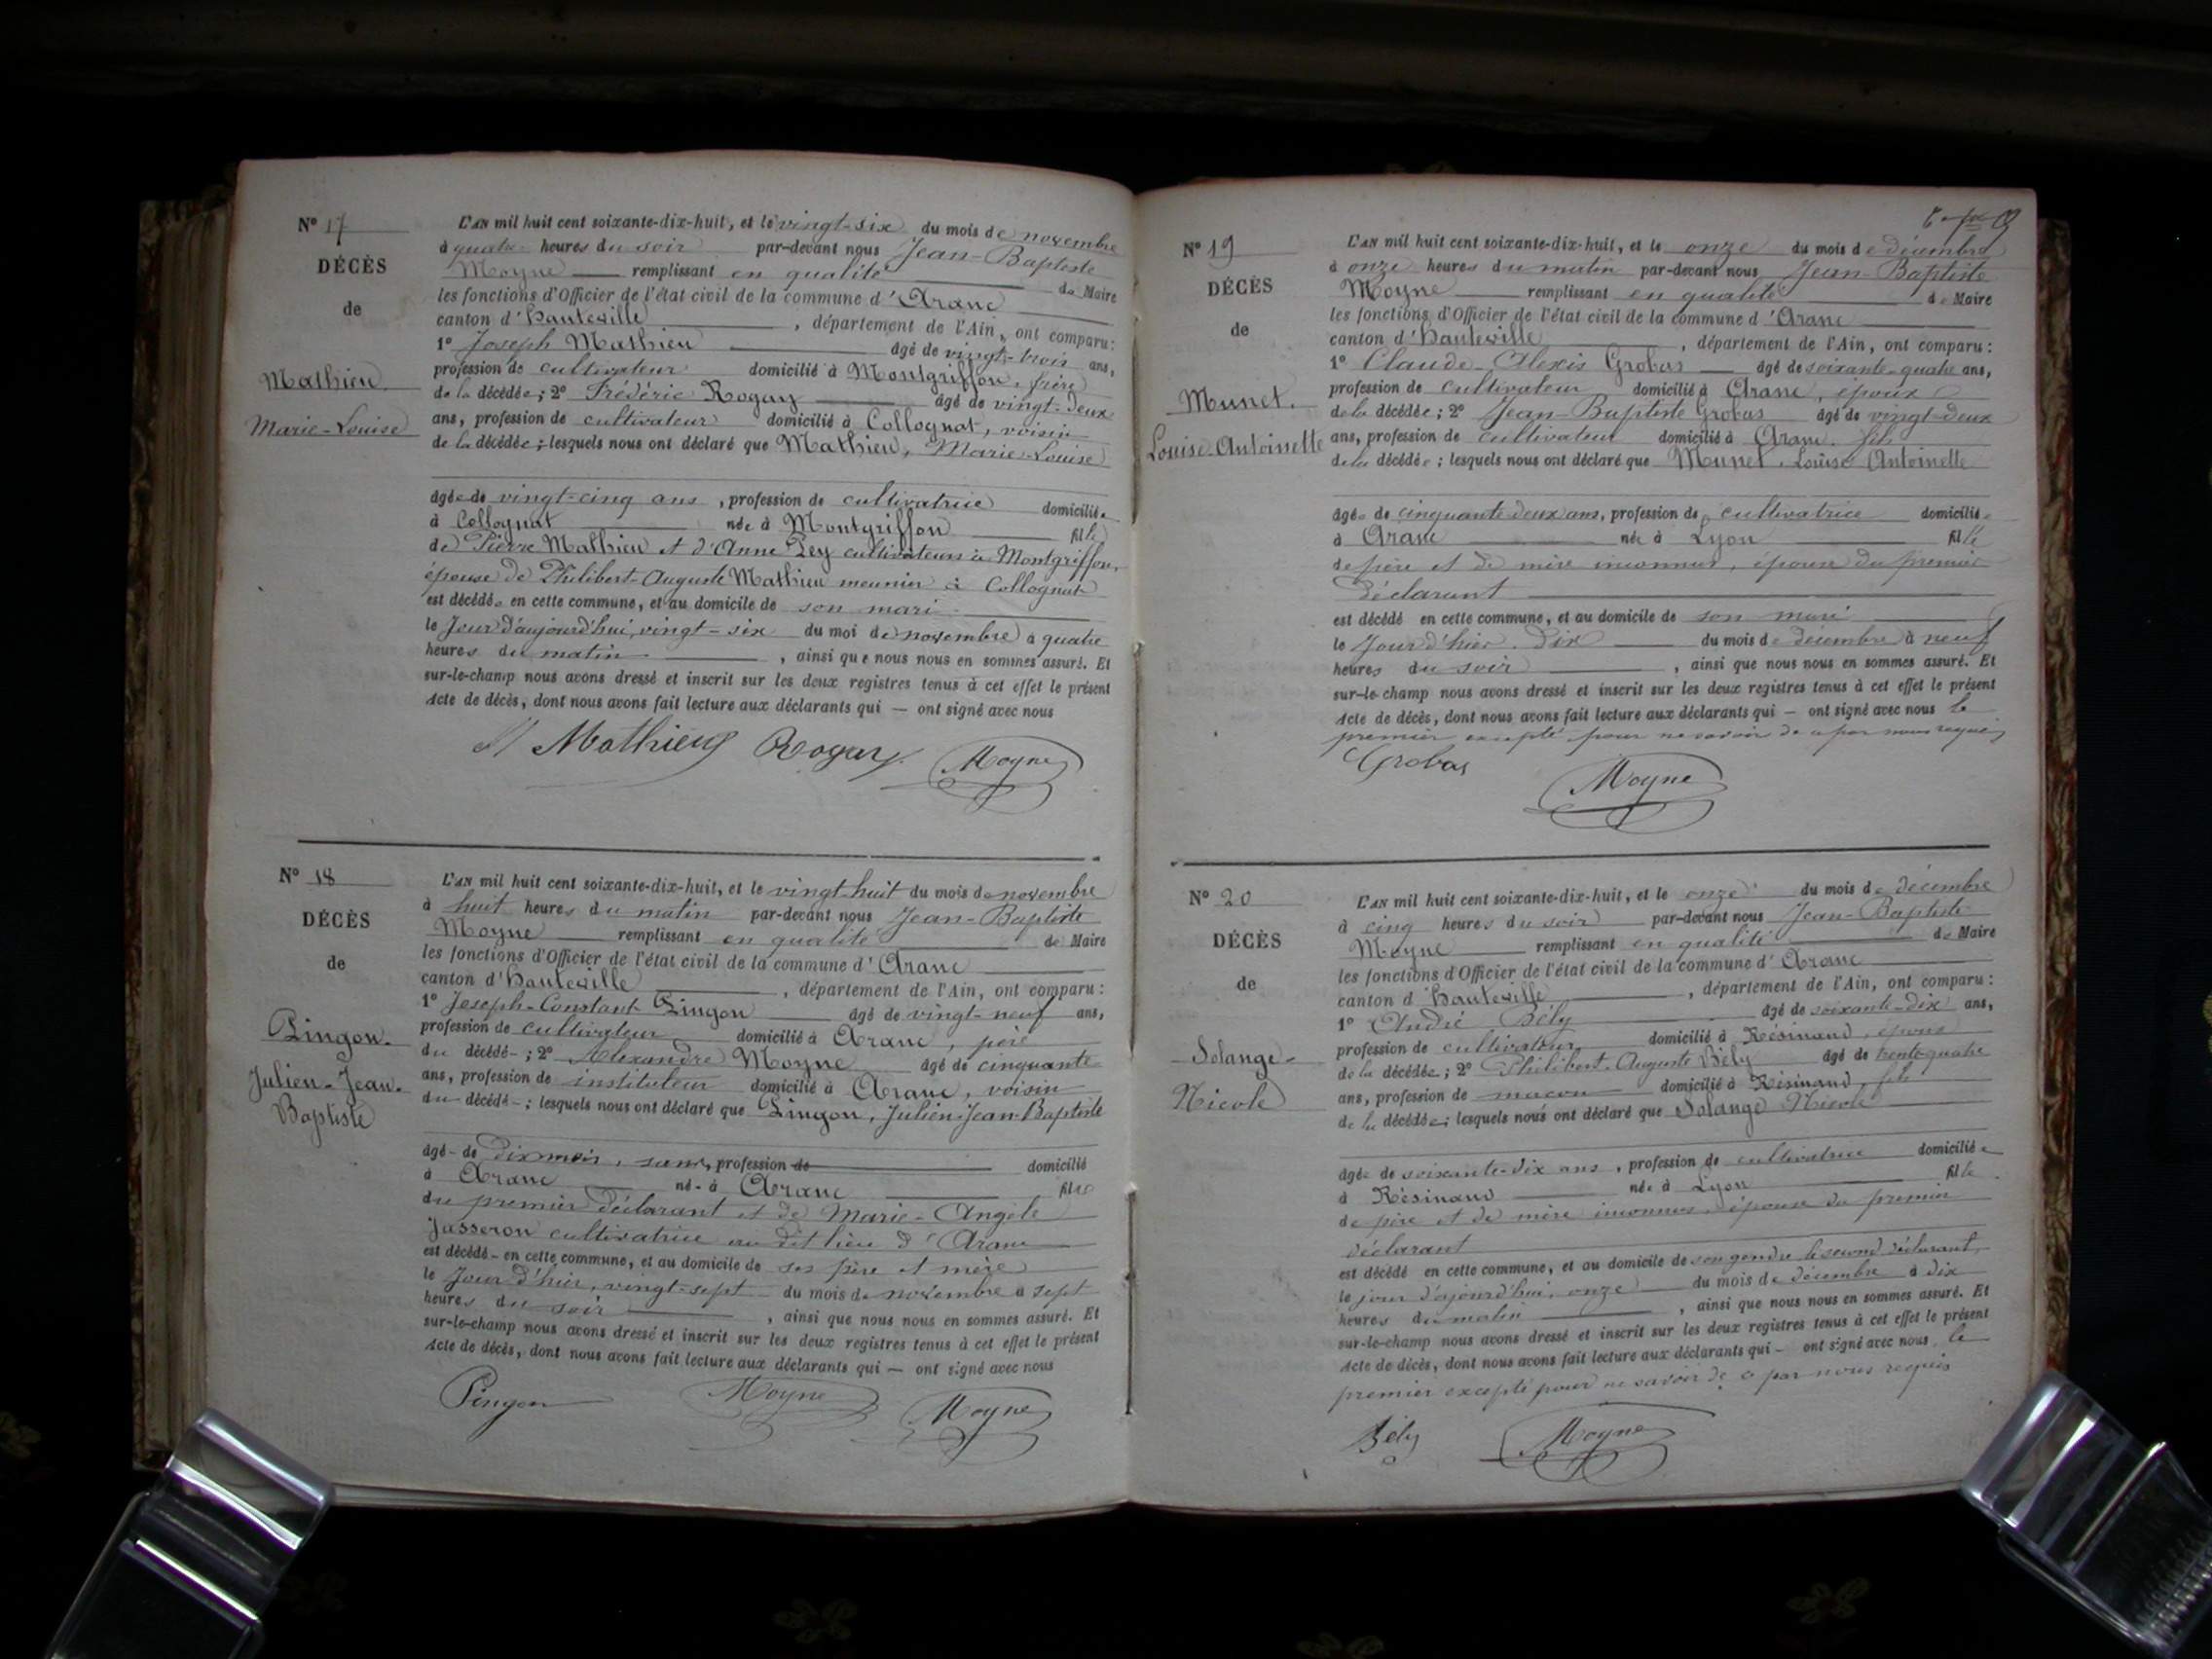 N° 17
DÉCÈS
de
Mathieu
Marie-Louise
L'AN mil huit cent soixante-dix-huit, et le vingt-six du mois de novembre
à quatre heures du soir par-devant nous Jean-Baptiste
Moyne remplissant en qualité de Maire
les fonctions d'Officier de l'état civil de la commune d'Aranc
canton d'Hauteville, département de l'Ain, ont comparu:
1° Joseph Mathieu âgé de vingt-trois ans,
profession de cultivateur domicilié à Montgriffon, frère
de la décédée; 2° Frédéric Rogay âgé de vingt-deux
ans, profession de cultivateur domicilié à Collognat, voisin
de la décédée; lesquels nous ont déclaré que Mathieu, Marie-Louise
âgée de vingt-cinq ans, profession de cultivatrice domiciliée
à Collognat née à Montgriffon fille
de Pierre Mathieu et d'Anne Pey cultivateurs à Montgriffon,
épouse de Philibert-Auguste Mathieu meunier à Collognat
est décédée en cette commune, et au domicile de son mari
le Jour d'aujourd'hui, vingt-six du moi de novembre à quatre
heures du matin, ainsi que nous nous en sommes assuré. Et
sur-le-champ nous avons dressé et inscrit sur les deux registres tenus à cet effet le présent
Acte de décès, dont nous avons fait lecture aux déclarants qui — ont signé avec nous
Mathieu Rogay Moyne
N° 18
DÉCÈS
de
Pingon
Julien-Jean-
Baptiste
L'AN mil huit cent soixante-dix-huit, et le vingt huit du mois de novembre
à huit heures du matin par-devant nous Jean-Baptiste
Moyne remplissant en qualité de Maire
les fonctions d'Officier de l'état civil de la commune d'Aranc
canton d'Hauteville, département de l'Ain, ont comparu:
1° Joseph-Constant Pingon âgé de vingt-neuf ans,
profession de cultivateur domicilié à Aranc, père
du décédé-; 2° Alexandre Moyne âgé de cinquante
ans, profession de instituteur domicilié à Aranc, voisin
du décédé-; lesquels nous ont déclaré que Pingon, Julien-Jean-Baptiste
âgé- de dix mois, sans, profession de domicilié
à Aranc né- à Aranc fils
du premier déclarant et de Marie-Angèle
Jasseron cultivatrice au dit lieu d'Aranc
est décédé- en cette commune, et au domicile de ses père et mère
le Jour d'hier, vingt-sept du mois de novembre à sept
heures du soir, ainsi que nous nous en sommes assuré. Et
sur-le-champ nous avons dressé et inscrit sur les deux registres tenus à cet effet le présent
Acte de décès, dont nous avons fait lecture aux déclarants qui — ont signé avec nous
Pingon Moyne Moyne
N° 19
DÉCÈS
de
Munet.
Louise-Antoinette
L'AN mil huit cent soixante-dix-huit, et le onze du mois de décembre
à onze heures du matin par-devant nous Jean-Baptiste
Moyne remplissant en qualité de Maire
les fonctions d'Officier de l'état civil de la commune d'Aranc
canton d'Hauteville, département de l'Ain, ont comparu:
1° Claude-Alexis Grobas âgé de soixante-quatre ans,
profession de cultivateur domicilié à Aranc, époux
de la décédée; 2° Jean-Baptiste Grobas âgé de vingt-deux
ans, profession de cultivateur domicilié à Aranc. fils
de la décédée; lesquels nous ont déclaré que Munet, Louise Antoinette
âgée de cinquante deux ans, profession de cultivatrice domiciliée
à Aranc née à Lyon fille
de père et de mère inconnus, épouse du premier
déclarant
est décédé en cette commune, et au domicile de son mari
le Jour d'hier. Dix du mois de décembre à neuf
heures du soir, ainsi que nous nous en sommes assuré. Et
sur-le-champ nous avons dressé et inscrit sur les deux registres tenus à cet effet le présent
Acte de décès, dont nous avons fait lecture aux déclarants qui — ont signé avec nous le
premier excepté pour ne savoir de ce par nous requis
Grobas Moyne
N° 20
DÉCÈS
de
Solange-
Nicole
L'AN mil huit cent soixante-dix-huit, et le onze du mois de décembre
à cinq heures du soir par-devant nous Jean-Baptiste
Moyne remplissant en qualité de Maire
les fonctions d'Officier de l'état civil de la commune d'Aranc
canton d'Hauteville, département de l'Ain, ont comparu:
1° André Bély âgé de soixante-dix ans,
profession de cultivateur domicilié à Résinand, époux
de la décédée; 2° Philibert-Auguste Bély âgé de trente-quatre
ans, profession de maçon domicilié à Résinand, fils
de la décédée; lesquels nous ont déclaré que Solange Nicole
âgée de soixante-dix ans, profession de cultivatrice domiciliée
à Résinand née à Lyon fille
de père et de mère inconnus, épouse du premier
déclarant
est décédé en cette commune, et au domicile de son gendre le second déclarant,
le jour d'aujourd'hui, onze du mois de décembre à dix
heures du matin, ainsi que nous nous en sommes assuré. Et
sur-le-champ nous avons dressé et inscrit sur les deux registres tenus à cet effet le présent
Acte de décès, dont nous avons fait lecture aux déclarants qui — ont signé avec nous, le
premier excepté pour ne savoir de ce par nous requis
Bély Moyne